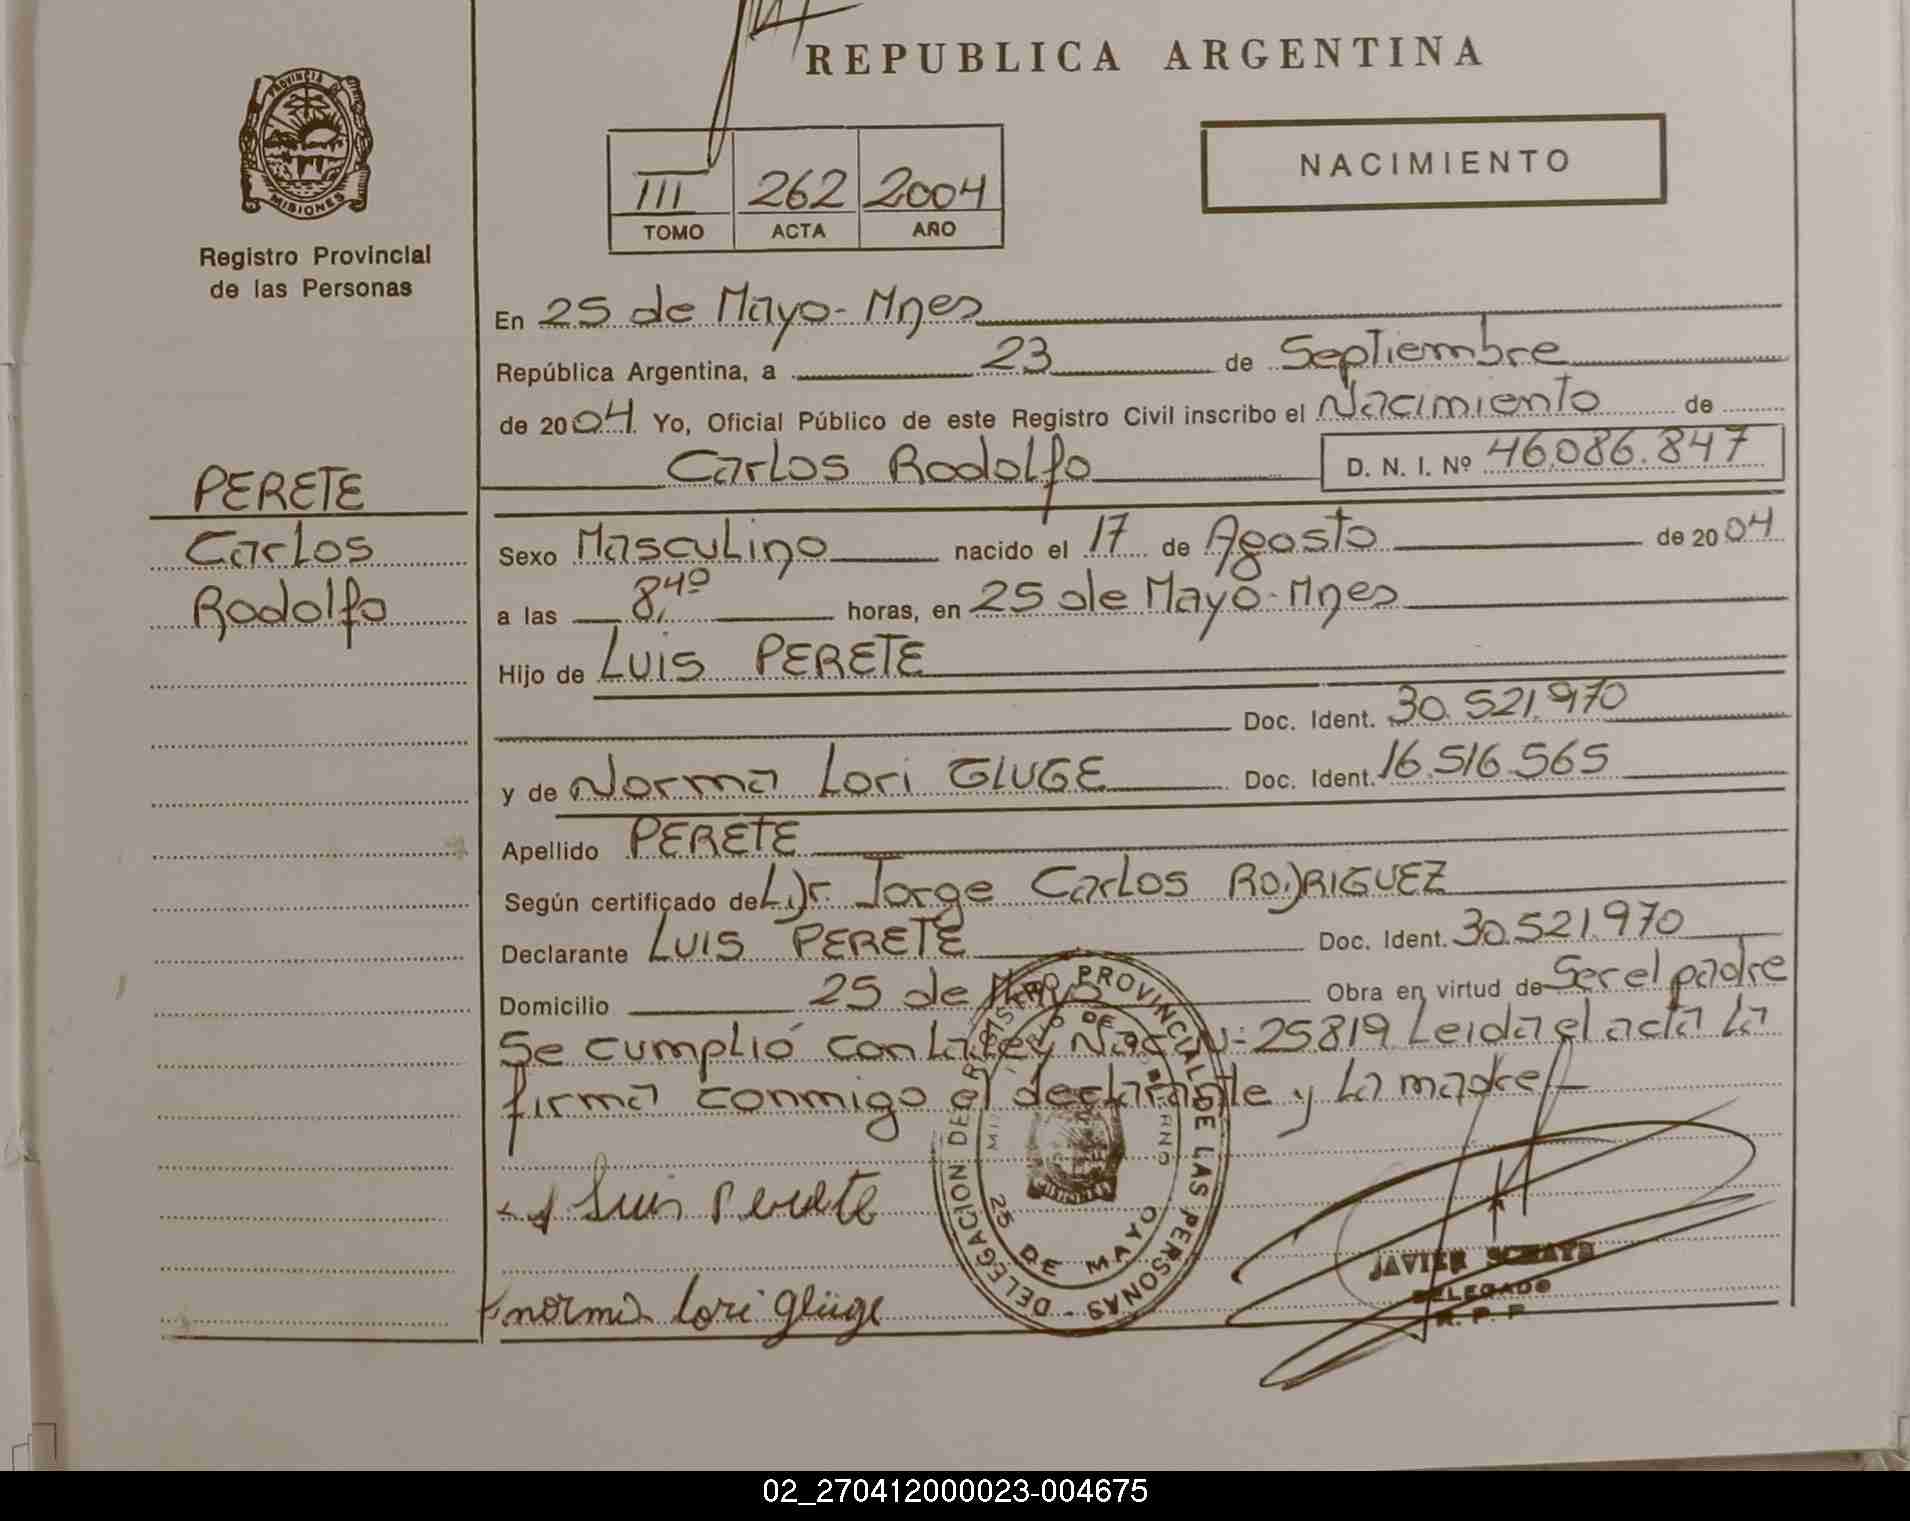 REPUBLICA ARGENTINA
PROVINCIA DE
MISIONES
Registro Provincial
de las Personas
III 262 2004
TOMO ACTA AÑO
NACIMIENTO
En 25 de Mayo - Mnes
República Argentina, a 23 de Septiembre
de 2004 Yo, Oficial Público de este Registro Civil inscribo el Nacimiento de
Carlos Rodolfo D. N. I. Nº 46.086.847
PERETE
Carlos
Rodolfo
Sexo Masculino nacido el 17 de Agosto de 2004
a las 8,40 horas, en 25 de Mayo - Mnes
Hijo de Luis PERETE
Doc. Ident. 30.521.970
y de Norma Lori GLUGE Doc. Ident. 16.516.565
Apellido PERETE
Según certificado de Dr. Jorge Carlos RODRIGUEZ
Declarante Luis PERETE Doc. Ident. 30.521.970
Domicilio 25 de Mayo Obra en virtud de Ser el padre
Se cumplió con la Ley Nac. Nº 25819 Leida el acta la
firma conmigo el declarante y la madre
Luis Perete
norma lori glüge
DELEGACION DEL REGISTRO PROVINCIAL DE LAS PERSONAS -
25 DE MAYO
JAVIER
DELEGADO
R. P. P.
02_270412000023-004675